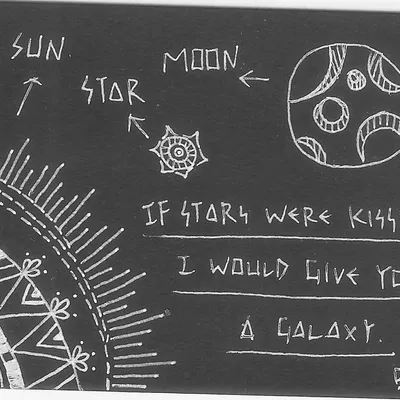 SUN
MOON
STAR
IF STARS WERE KISS
I WOULD GIVE YO
A GALAXY.